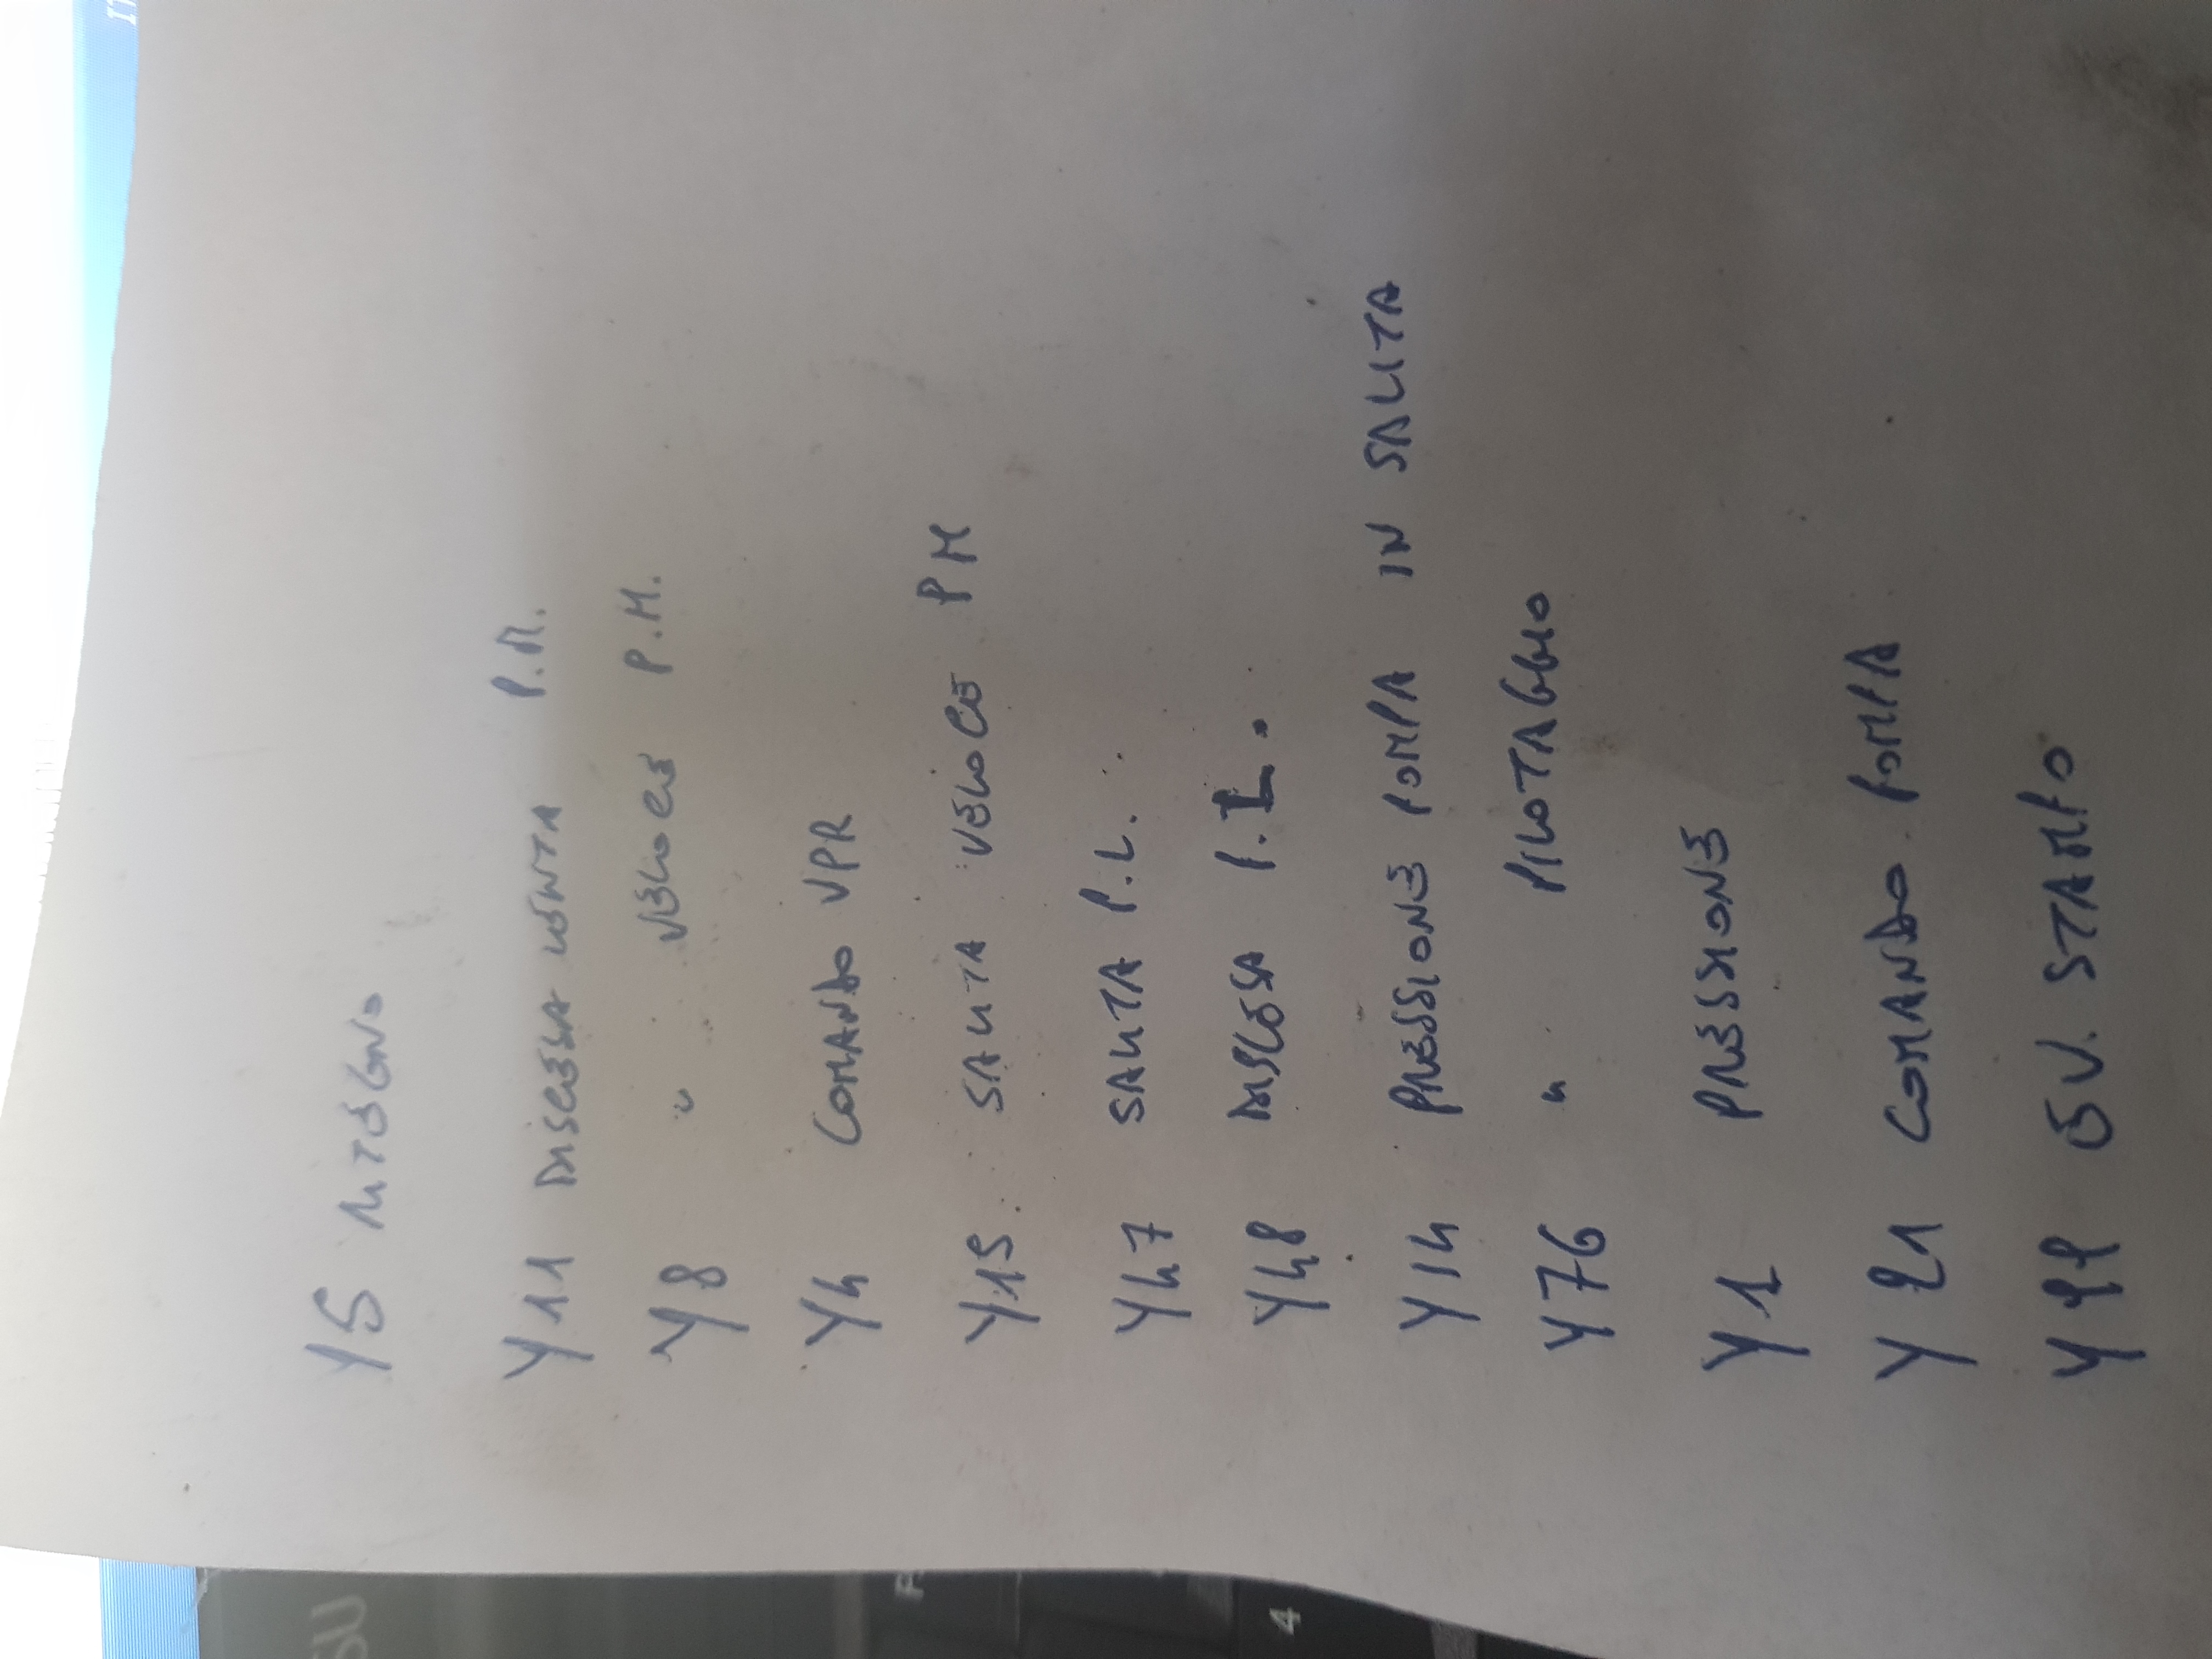 Y5 RITEGNO
Y11 DISCESA LENTA P.M.
Y8 " VELOCE P.M.
Y4 COMANDO VPR
Y15 SALITA VELOCE PM
Y47 SALITA P.L.
Y48 DISCESA P.L.
Y14 PRESSIONE POMPA IN SALITA
Y76 " PILOTAGGIO
Y1 PRESSIONE
Y21 COMANDO POMPA
EV. STAMPO
4